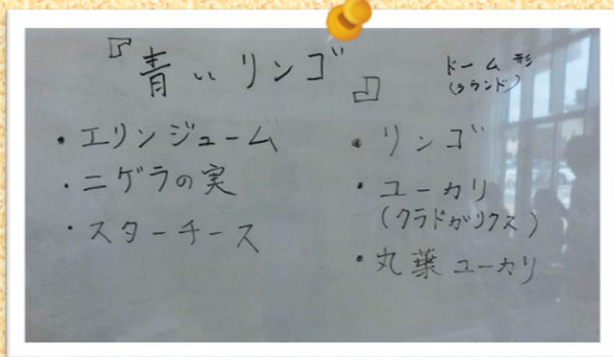 『青いリンゴ』
ドーム形
(ラウンド)
・エリンジューム
・ニゲラの実
・スターチース
・リンゴ
・ユーカリ
(クラドガリクス)
・丸葉ユーカリ